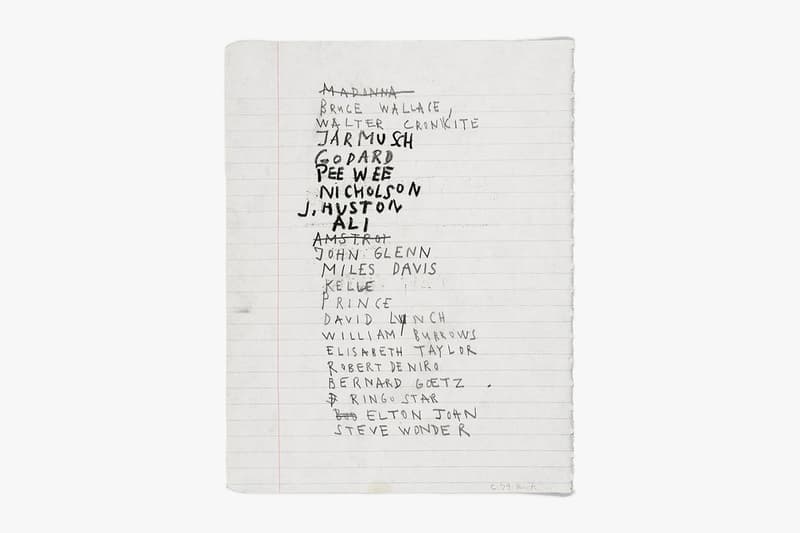 MADONNA
BRUCE WALLACE,
WALTER CRONKITE
JARMUSH
GODARD
PEE WEE
NICHOLSON
J. HUSTON
ALI
AMSTROI
JOHN GLENN
MILES DAVIS
KELLE
PRINCE
DAVID LYNCH
WILLIAM BURROWS
ELISABETH TAYLOR
ROBERT DENIRO
BERNARD GOETZ .
RINGO STAR
BOB ELTON JOHN
STEVE WONDER